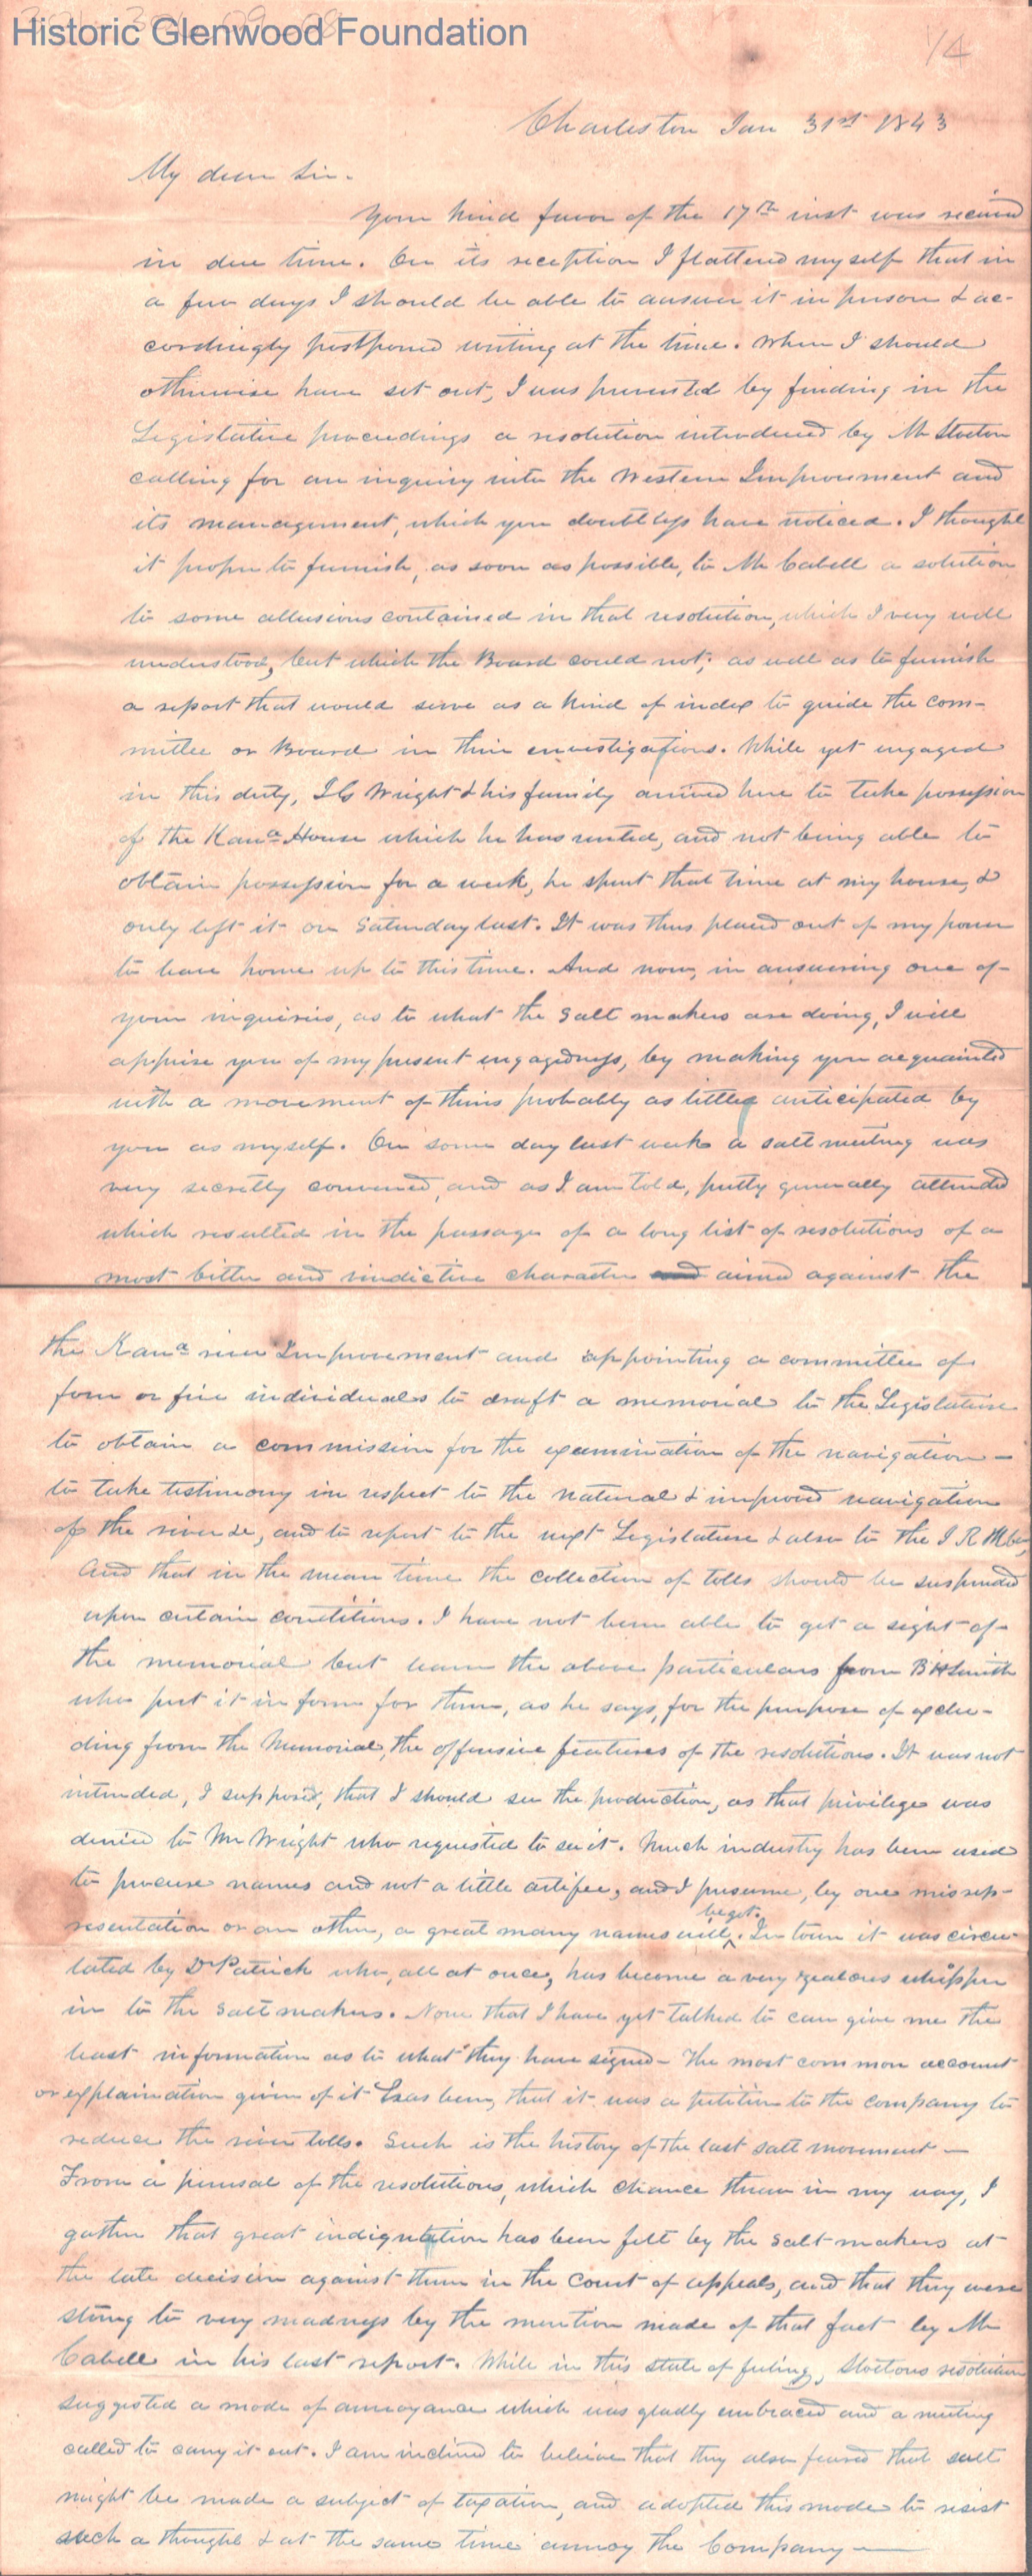 Historic Glenwood Foundation
1/4
Charleston Jan 31st 1843
My dear Sir.
Your kind favor of the 17th inst was received
in due time. On its reception I flattered myself that in
a few days I should be able to answer it in person & ac-
cordingly postponed writing at the time. When I should
otherwise have set out, I was prevented by finding in the
Legislative proceedings a resolution introduced by Mr Stockton
calling for an inquiry into the Western Improvement and
its management, which you doubtless have noticed. I thought
it proper to furnish, as soon as possible, to Mr Cabell a solution
to some allusions contained in that resolution, which I very well
understood, but which the Board could not; as well as to furnish
a report that would serve as a kind of index to guide the com-
mittee or Board in their envestigations. While yet engaged
in this duty, J G Wright & his family arrived here to take possession
of the Kana House which he has rented, and not being able to
obtain possession for a week, he spent that time at my house, &
only left it on Saturday last. It was thus placed out of my power
to leave home up to this time. And now, in answering one of
your inquiries, as to what the Salt makers are doing, I will
apprise you of my present engagedness, by making you acquainted
with a movement of theirs probably as little anticipated by
you as myself. On some day last week a salt meeting was
very secretly convened, and as I am told, pretty generally attended
which resulted in the passage of a long list of resolutions of a
most bitter and vindictive character and aimed against the
the Kana river Improvement and appointing a committee of
four or five individuals to draft a memorial to the Legislature
to obtain a commission for the examination of the navigation—
to take testimony in respect to the natural & improved navigation
of the river &c, and to report to the next Legislature & also to the J R
And that in the mean time the collection of tolls should be suspended
upon certain conditions. I have not been able to get a sight of
the memorial but learn the above particulars from B H Smith
who put it in form for them, as he says, for the purpose of exclu-
ding from the Memorial, the offensive features of the resolutions. It was not
intended, I suppose, that I should see the production, as that privilege was
denied to Mr Wright who requested to see it. Much industry has been used
to procure names and not a little artifice, and I presume, by one misrep-
be got.
resentation or an other, a great many names will ^. In town it was circu-
lated by Dr Patrick who, all at once, has become a very zealous whipper
in to the Salt makers. None that I have yet talked to can give me the
least information as to what they have signed— The most common account
or explaination given of it has been, that it was a petition to the company to
reduce the river tolls. Such is the history of the last salt movement—
From a perusal of the resolutions, which chance threw in my way, I
gather that great indignation has been felt by the Salt makers at
the late decision against them in the Court of appeals, and that they were
stung to very madness by the mention made of that fact by Mr
Cabell in his last report. While in this state of feeling, Stocktons resolution
suggested a mode of annoyance which was gladly embraced and a meeting
called to carry it out. I am inclined to believe that they also feared that salt
might be made a subject of taxation, and adopted this mode to resist
such a thought & at the same time annoy the Company—